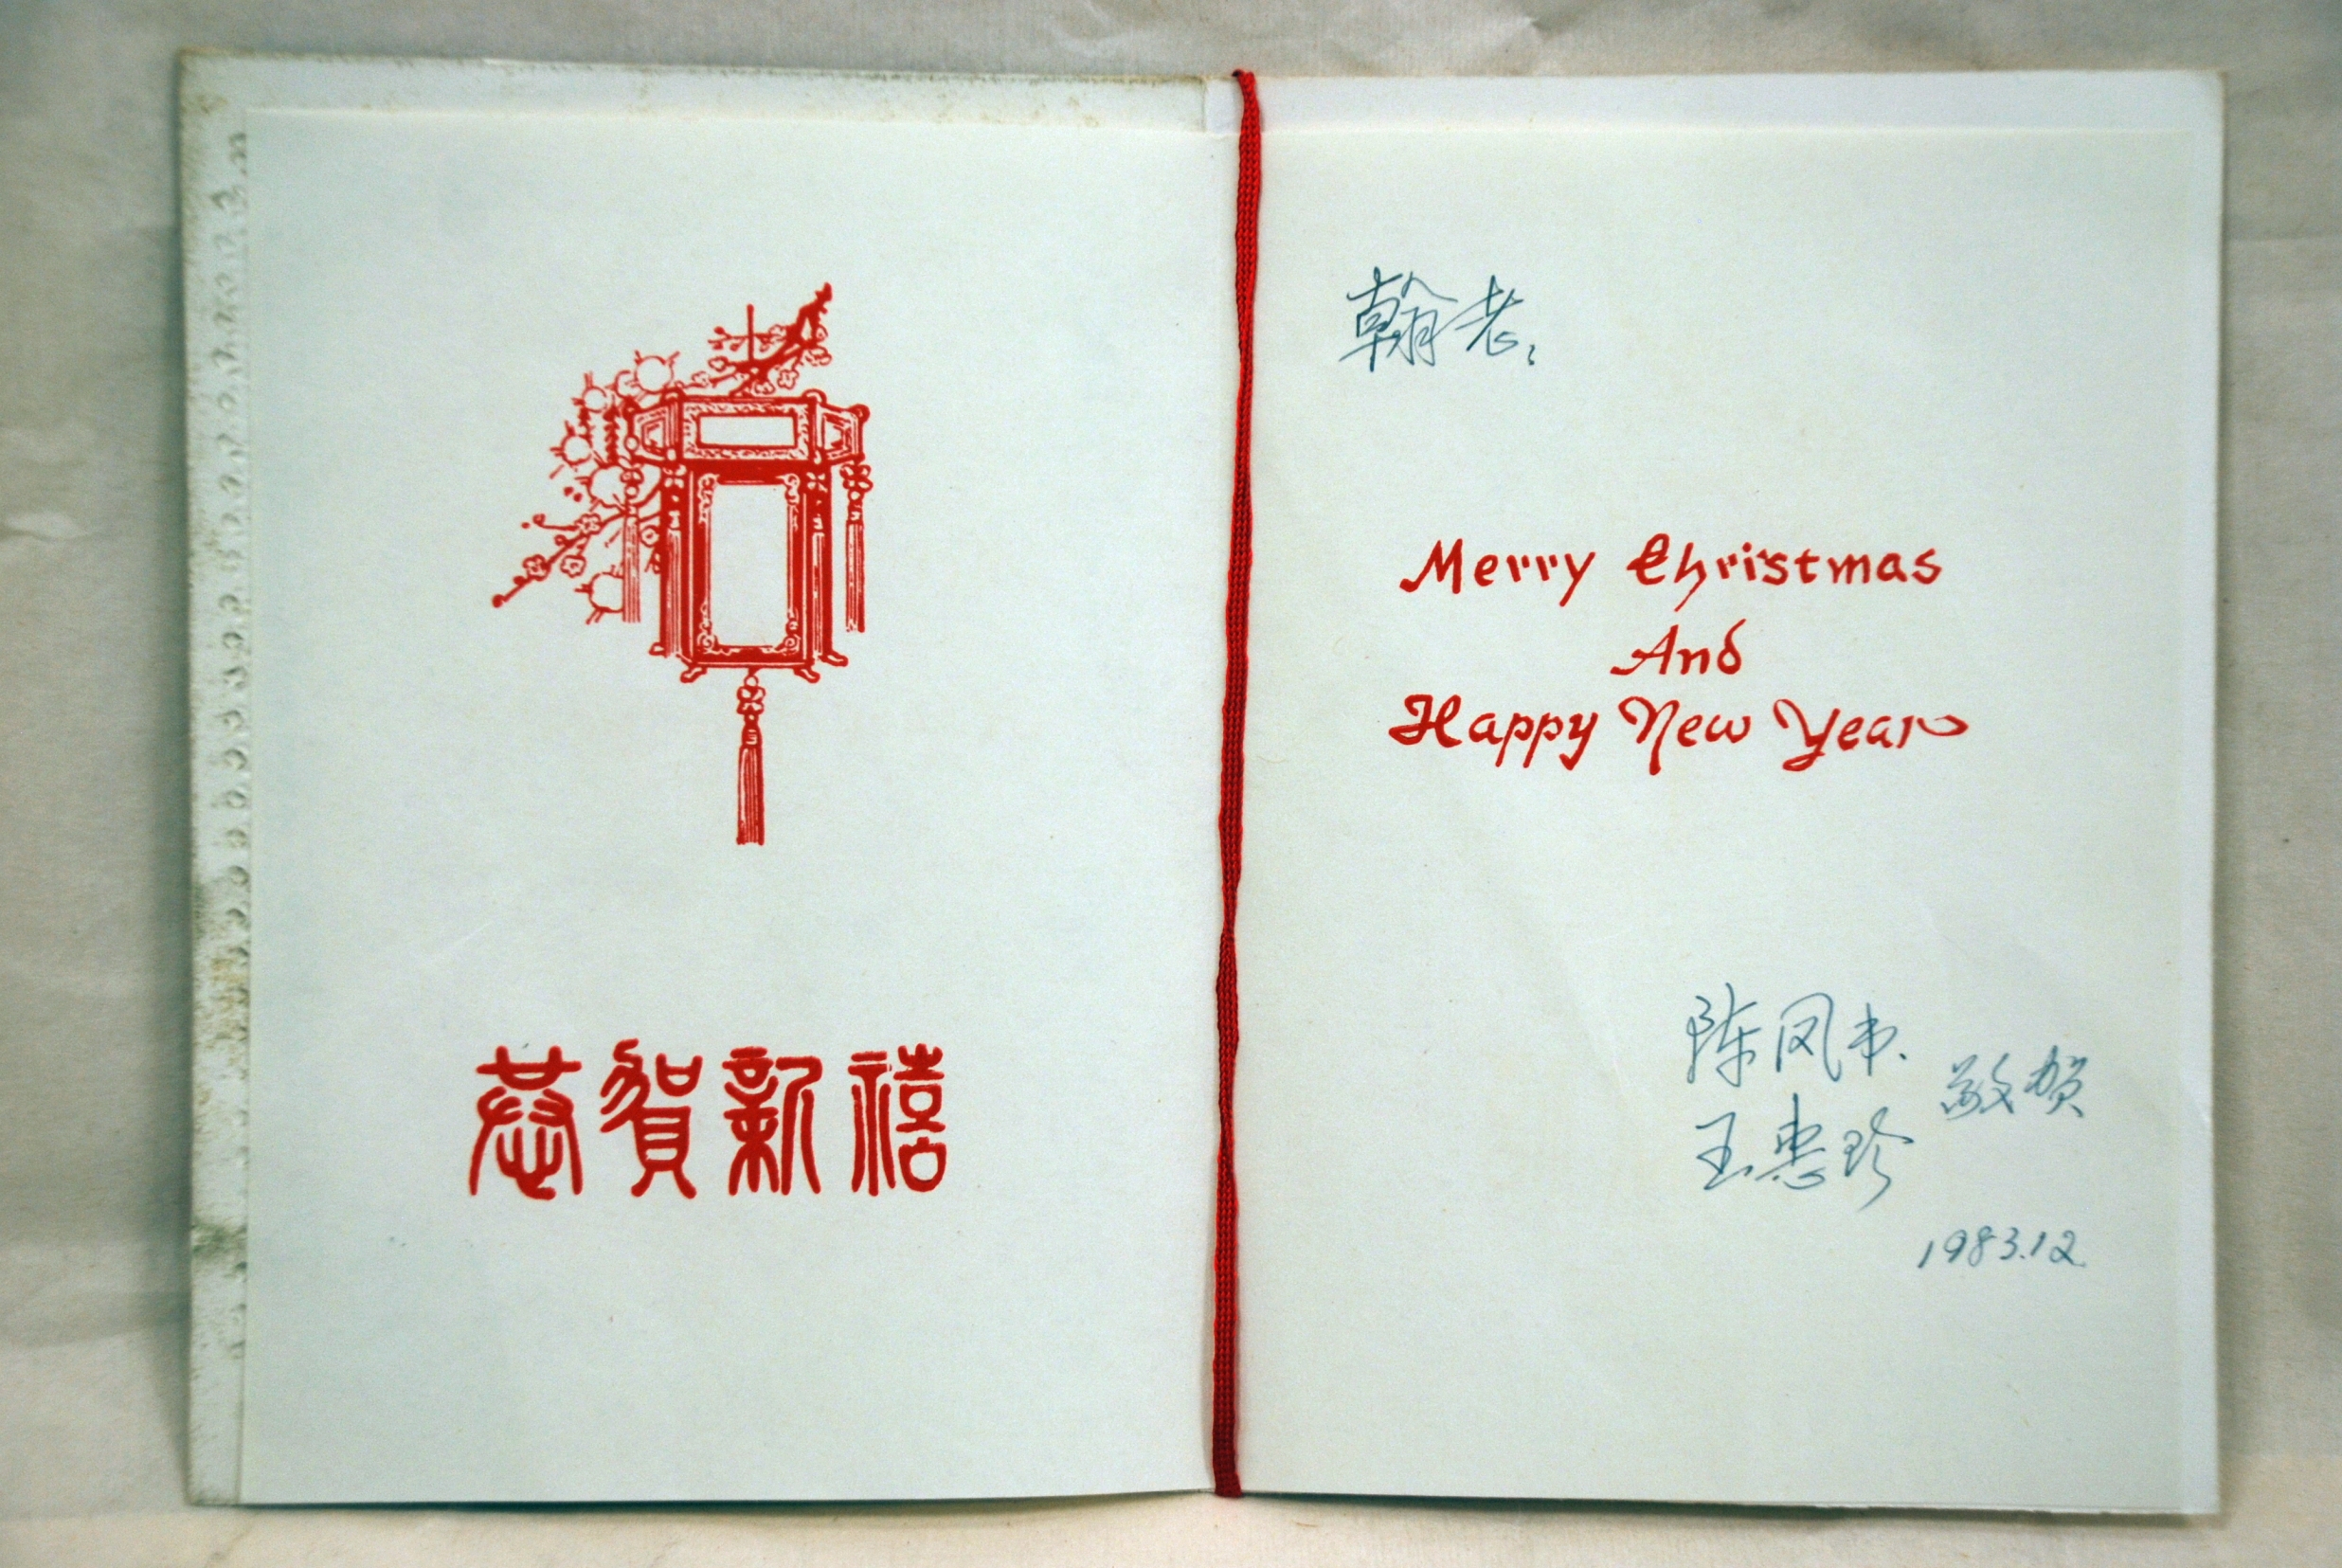 恭賀新禧
翰老:
Merry Christmas
And
Happy New Year
陈凤书
王惠珍
敬贺
1983.12